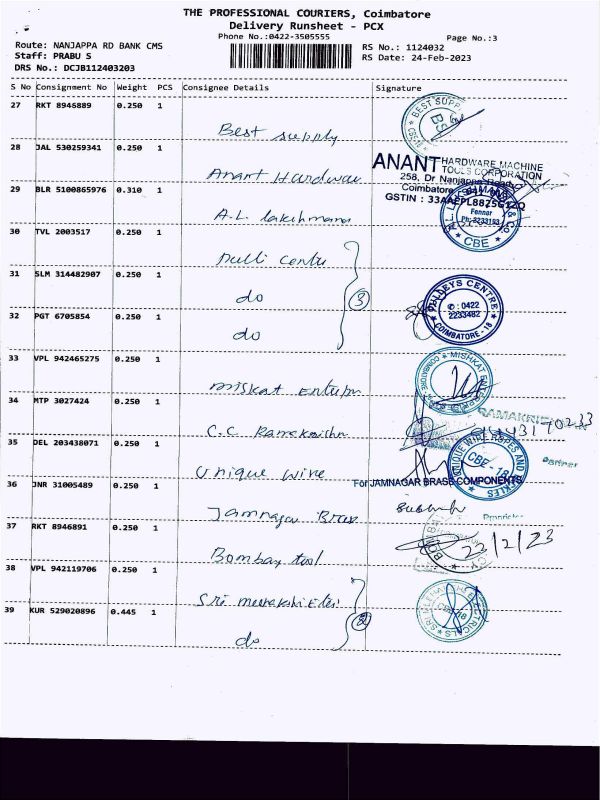 THE PROFESSIONAL COURIERS, Coimbatore
Delivery Runsheet - PCX
Phone No.:0422-3505555
Page No.:3
Route: NANJAPPA RD BANK CMS
RS No.: 1124032
Staff: PRABU S
RS Date: 24-Feb-2023
DRS No.: DCJB112403203
S No Consignment No Weight PCS Consignee Details Signature
27 RKT 8946889 0.250 1
Best supply
BEST SUPP
28 JAL 530259341 0.250 1
Anant Hardware
ANANT HARDWARE MACHINE
TOOLS CORPORATION
258, Dr Nanjappa Road
Coimbatore
GSTIN : 33AAEPL8825G1ZQ
29 BLR 5100865976 0.310 1
A.L. lakshmana
Fenner
Ph: 2233193
CBE
30 TVL 2003517 0.250 1
Pulli centre
31 SLM 314482907 0.250 1
do
3
PULLEYS CENTRE
✆ : 0422
2233482
COIMBATORE - 18
32 PGT 6705854 0.250 1
do
33 VPL 942465275 0.250 1
miskat Enterpr
MISHKAT ENTERPRISE
COIMBATORE
34 MTP 3027424 0.250 1
C.C. Ramakrishn
RAMAKRISHNAN
35 DEL 203438071 0.250 1
Unique wire
UNIQUE WIRE ROPES AND
CBE - 18
Partner
36 JNR 31005489 0.250 1
For JAMNAGAR BRASS COMPONENTS
Jamnagar Brass
Proprietor
37 RKT 8946891 0.250 1
Bombay tool
BOMBAY
22/2/23
38 VPL 942119706 0.250 1
Sri meenakshi Etri
2
39 KUR 529020896 0.445 1
do